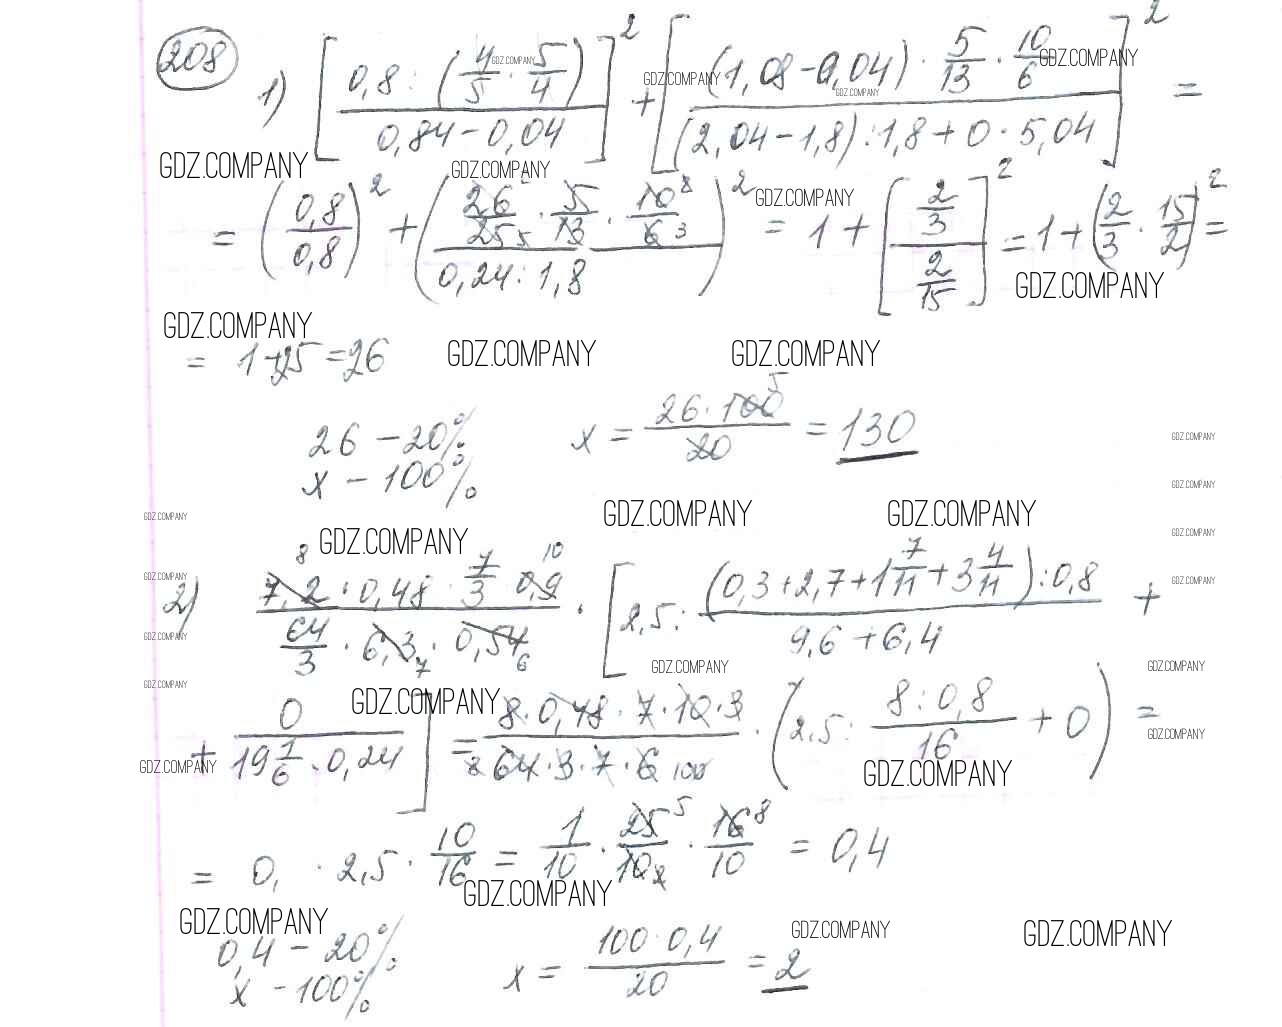 208
1) [ 0,8 : (4/5 · 5/4) / 0,84 − 0,04 ]² + [ (1,08 − 0,04) · 5/13 · 10/6 / (2,04 − 1,8) : 1,8 + 0 · 5,04 ]² =
= (0,8 / 0,8)² + ( 26/25 · 5/13 · 10/6 / 0,24 : 1,8 )² = 1 + [ 2/3 / 2/15 ]² = 1 + (2/3 · 15/2)² =
= 1 + 25 = 26
26 − 20%
x − 100%
x = 26 · 100 / 20 = 130
2) 7,2 · 0,48 · 7/3 · 0,9 / 64/3 · 6,3 · 0,54 · [ 2,5 : (0,3 + 2,7 + 1 7/11 + 3 4/11) : 0,8 / 9,6 + 6,4 +
+ 0 / 19 1/6 · 0,24 ] = 8 · 0,48 · 7 · 10 · 3 / 64 · 3 · 7 · 6 · (2,5 : 8 : 0,8 / 16 + 0) =
= 0, · 2,5 · 10/16 = 1/10 · 25/10 · 16/10 = 0,4
0,4 − 20%
x − 100%
x = 100 · 0,4 / 20 = 2
GDZ.COMPANY